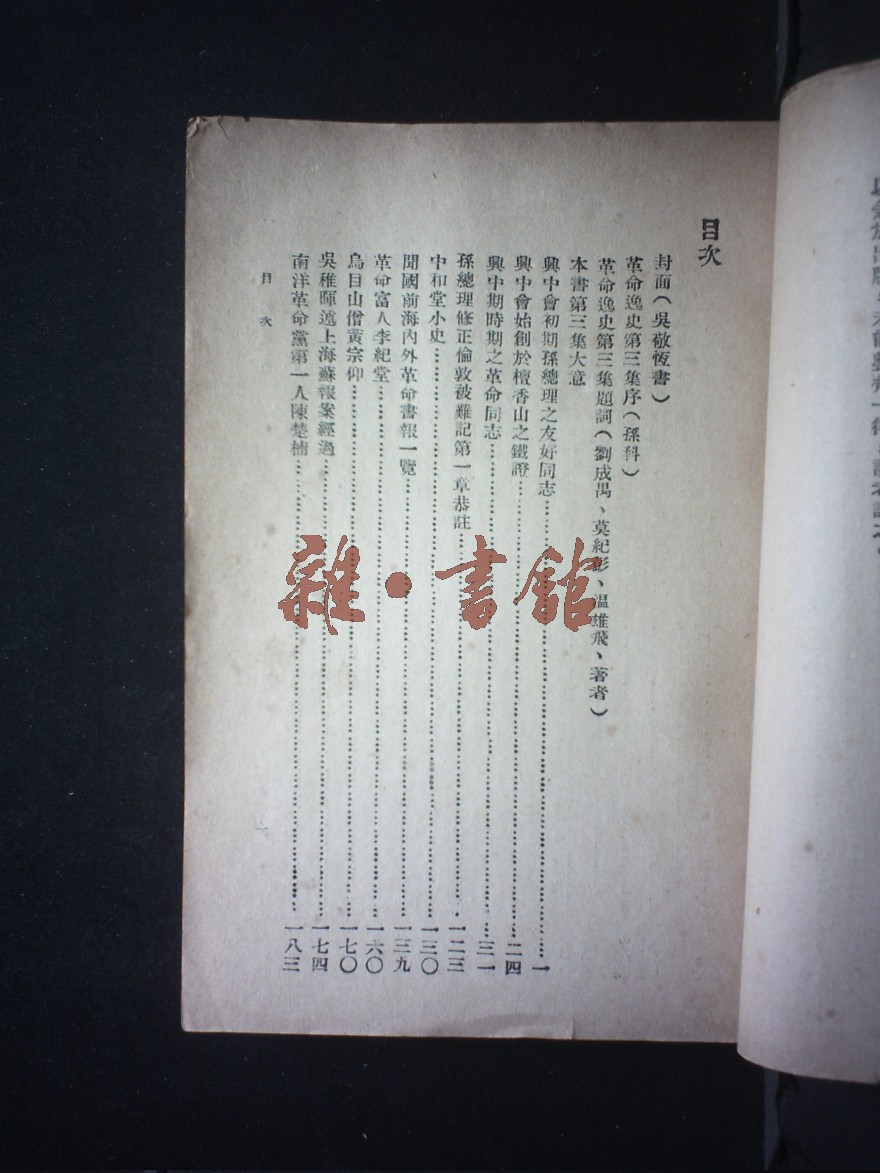 目次
封面(吳敬恆書)
革命逸史第三集序(孫科)
革命逸史第三集題詞(劉成禺、莫紀彭、溫雄飛、著者)
本書第三集大意
興中會初期孫總理之友好同志……一
興中會始創於檀香山之鐵證……二四
興中期時期之革命同志……三一
孫總理修正倫敦被難記第一章恭註……一二三
中和堂小史……一三〇
開國前海內外革命書報一覽……一三九
革命富人李紀堂……一六〇
烏目山僧黃宗仰……一七〇
吳稚暉述上海蘇報案經過……一七四
南洋革命黨第一人陳楚楠……一八三
目次
一
雜·書館